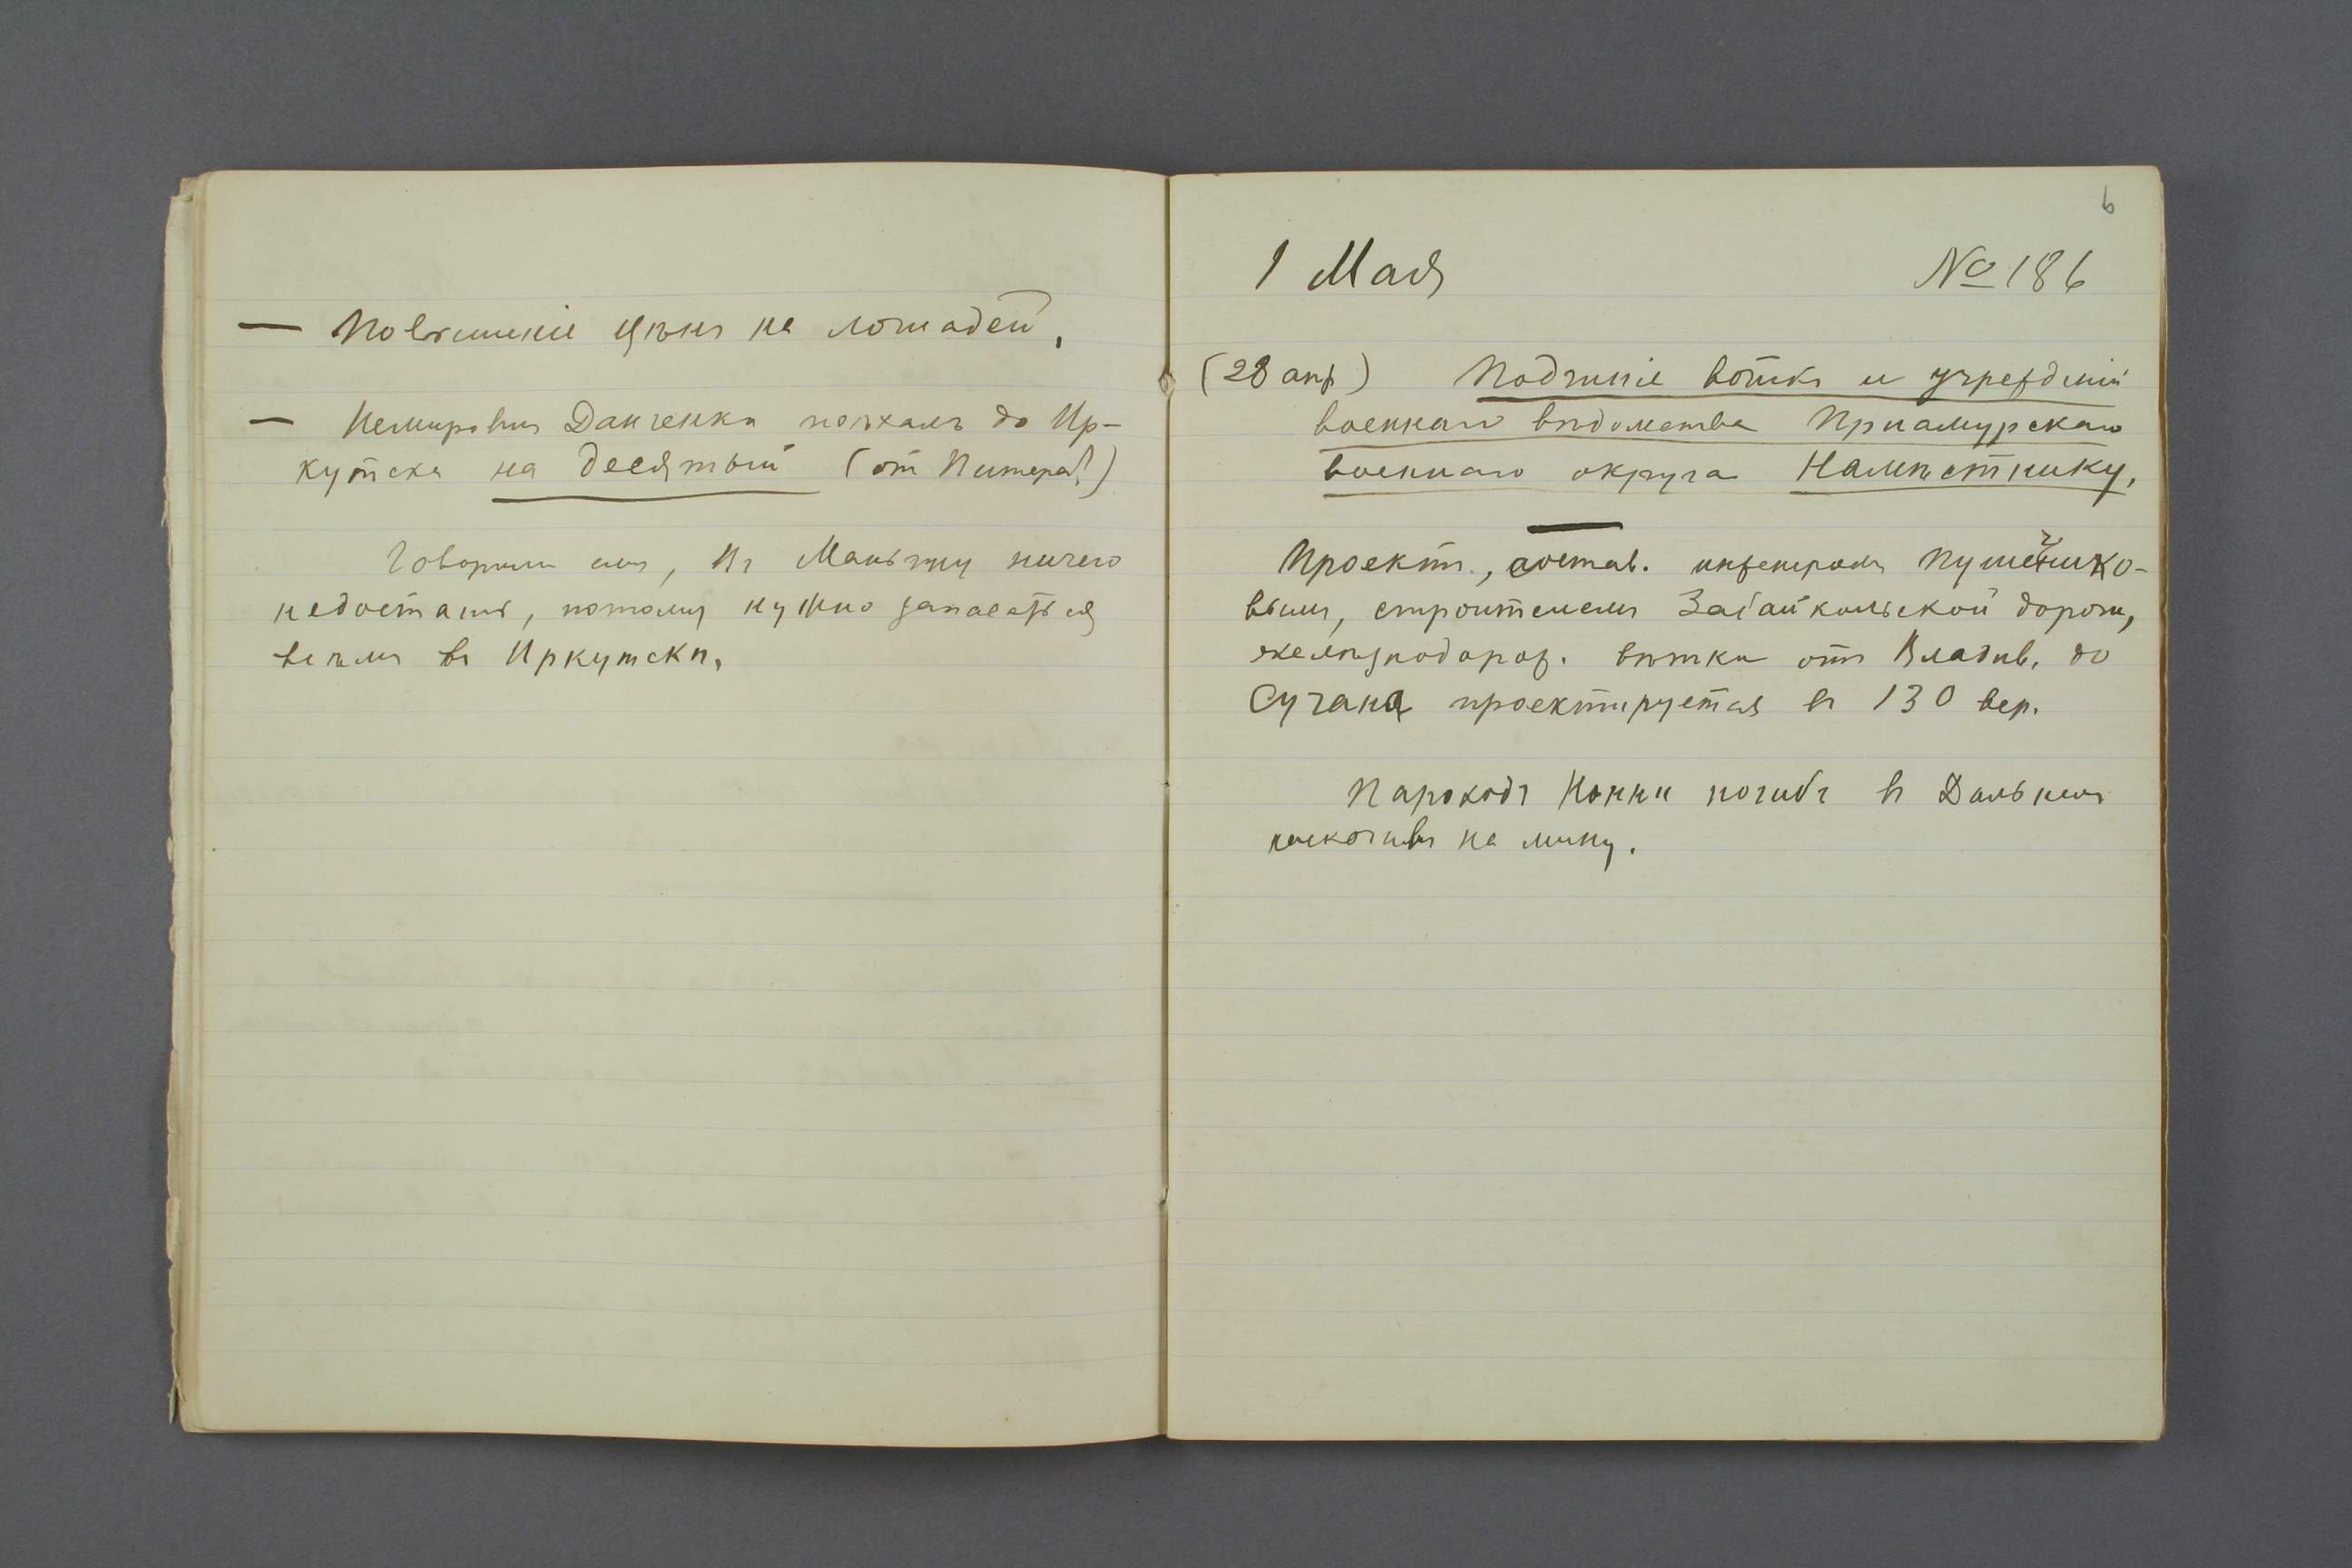 — Повышеніе цѣнъ на лошадей.
— Немировичъ Данченко поѣхалъ до Ир-
кутска на десятый (от Питера?)
Говорили ему, въ Маньчжу ничего
недостать, потому нужно запасаться
всѣмъ въ Иркутскѣ.
6
1 Мая № 186
(28 апр) Подчиніе войскъ и учрежденій
военнаго вѣдомства Приамурскаго
военнаго округа Намѣстнику.
Проектъ, состав. инженеромъ Пушечнико-
вымъ, строителемъ Забайкальской дороги,
желѣзнодорож. вѣтки отъ Владив. до
Сучана проектируется въ 130 вер.
Пароходъ Нонни погибъ въ Дальнемъ
наскочивъ на мину.